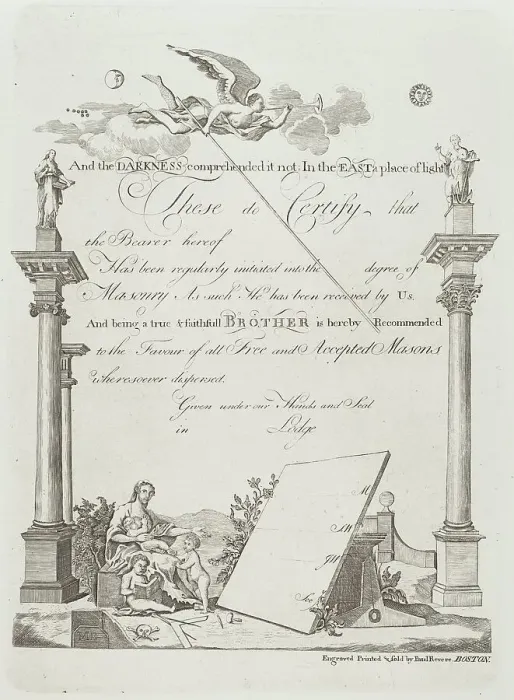 And the DARKNESS comprehended it not. In the EAST a place of light
These do Certify that
the Bearer hereof
Has been regularly initiated into the degree of
Masonry As such He has been received by Us.
And being a true & faithfull BROTHER is hereby Recommended
to the Favour of all Free and Accepted Masons
wheresoever dispersed.
Given under our Hands and Seal
in Lodge
M
S.W
J.W
Sec
Engraved Printed & Sold by Paul Revere BOSTON.